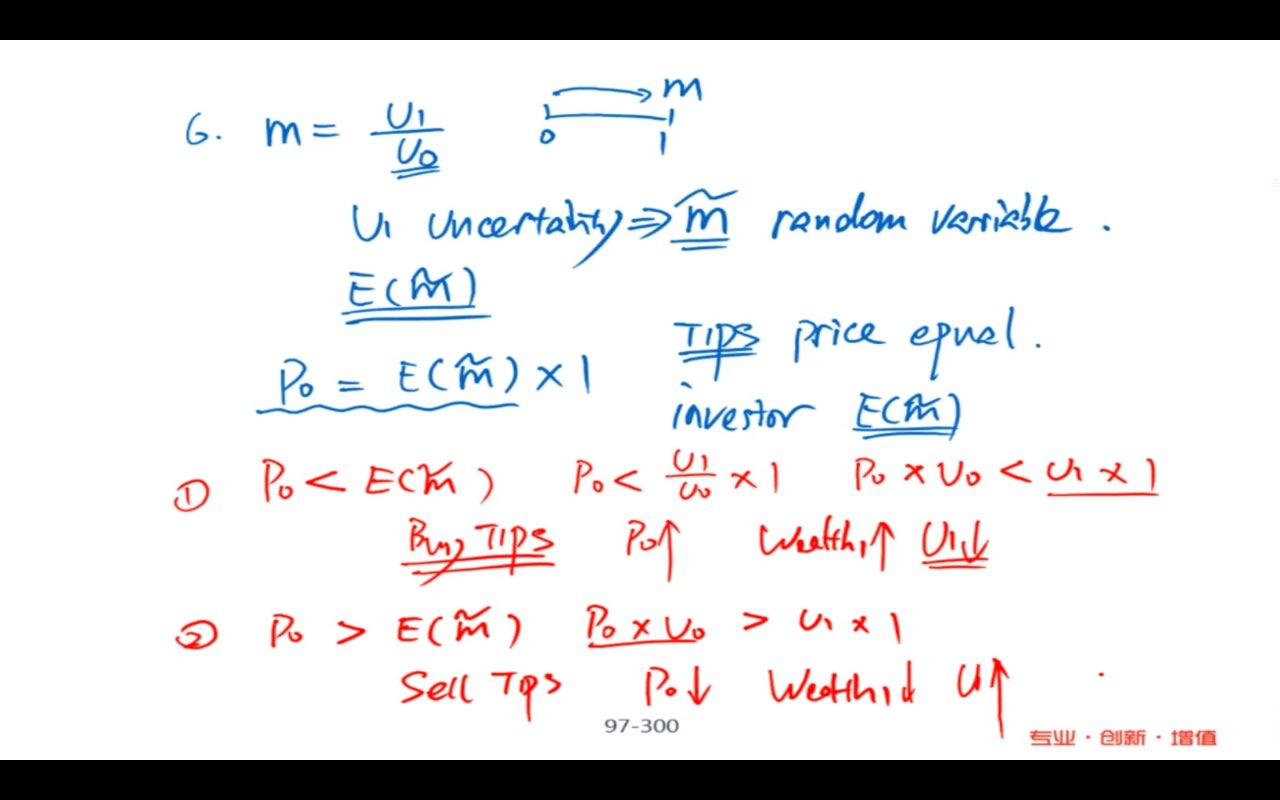 6. m = U1/U0 0 1 m
U1 uncertainty ⇒ m̃ random variable.
E(m̃)
TIPS price equal.
P0 = E(m̃) × 1
investor E(m̃)
① P0 < E(m̃) P0 < U1/U0 × 1 P0 × U0 < U1 × 1
Buy TIPS P0↑ Wealth1↑ U1↓
② P0 > E(m̃) P0 × U0 > U1 × 1
Sell TIPS P0↓ Wealth1↓ U1↑
97-300
专业·创新·增值